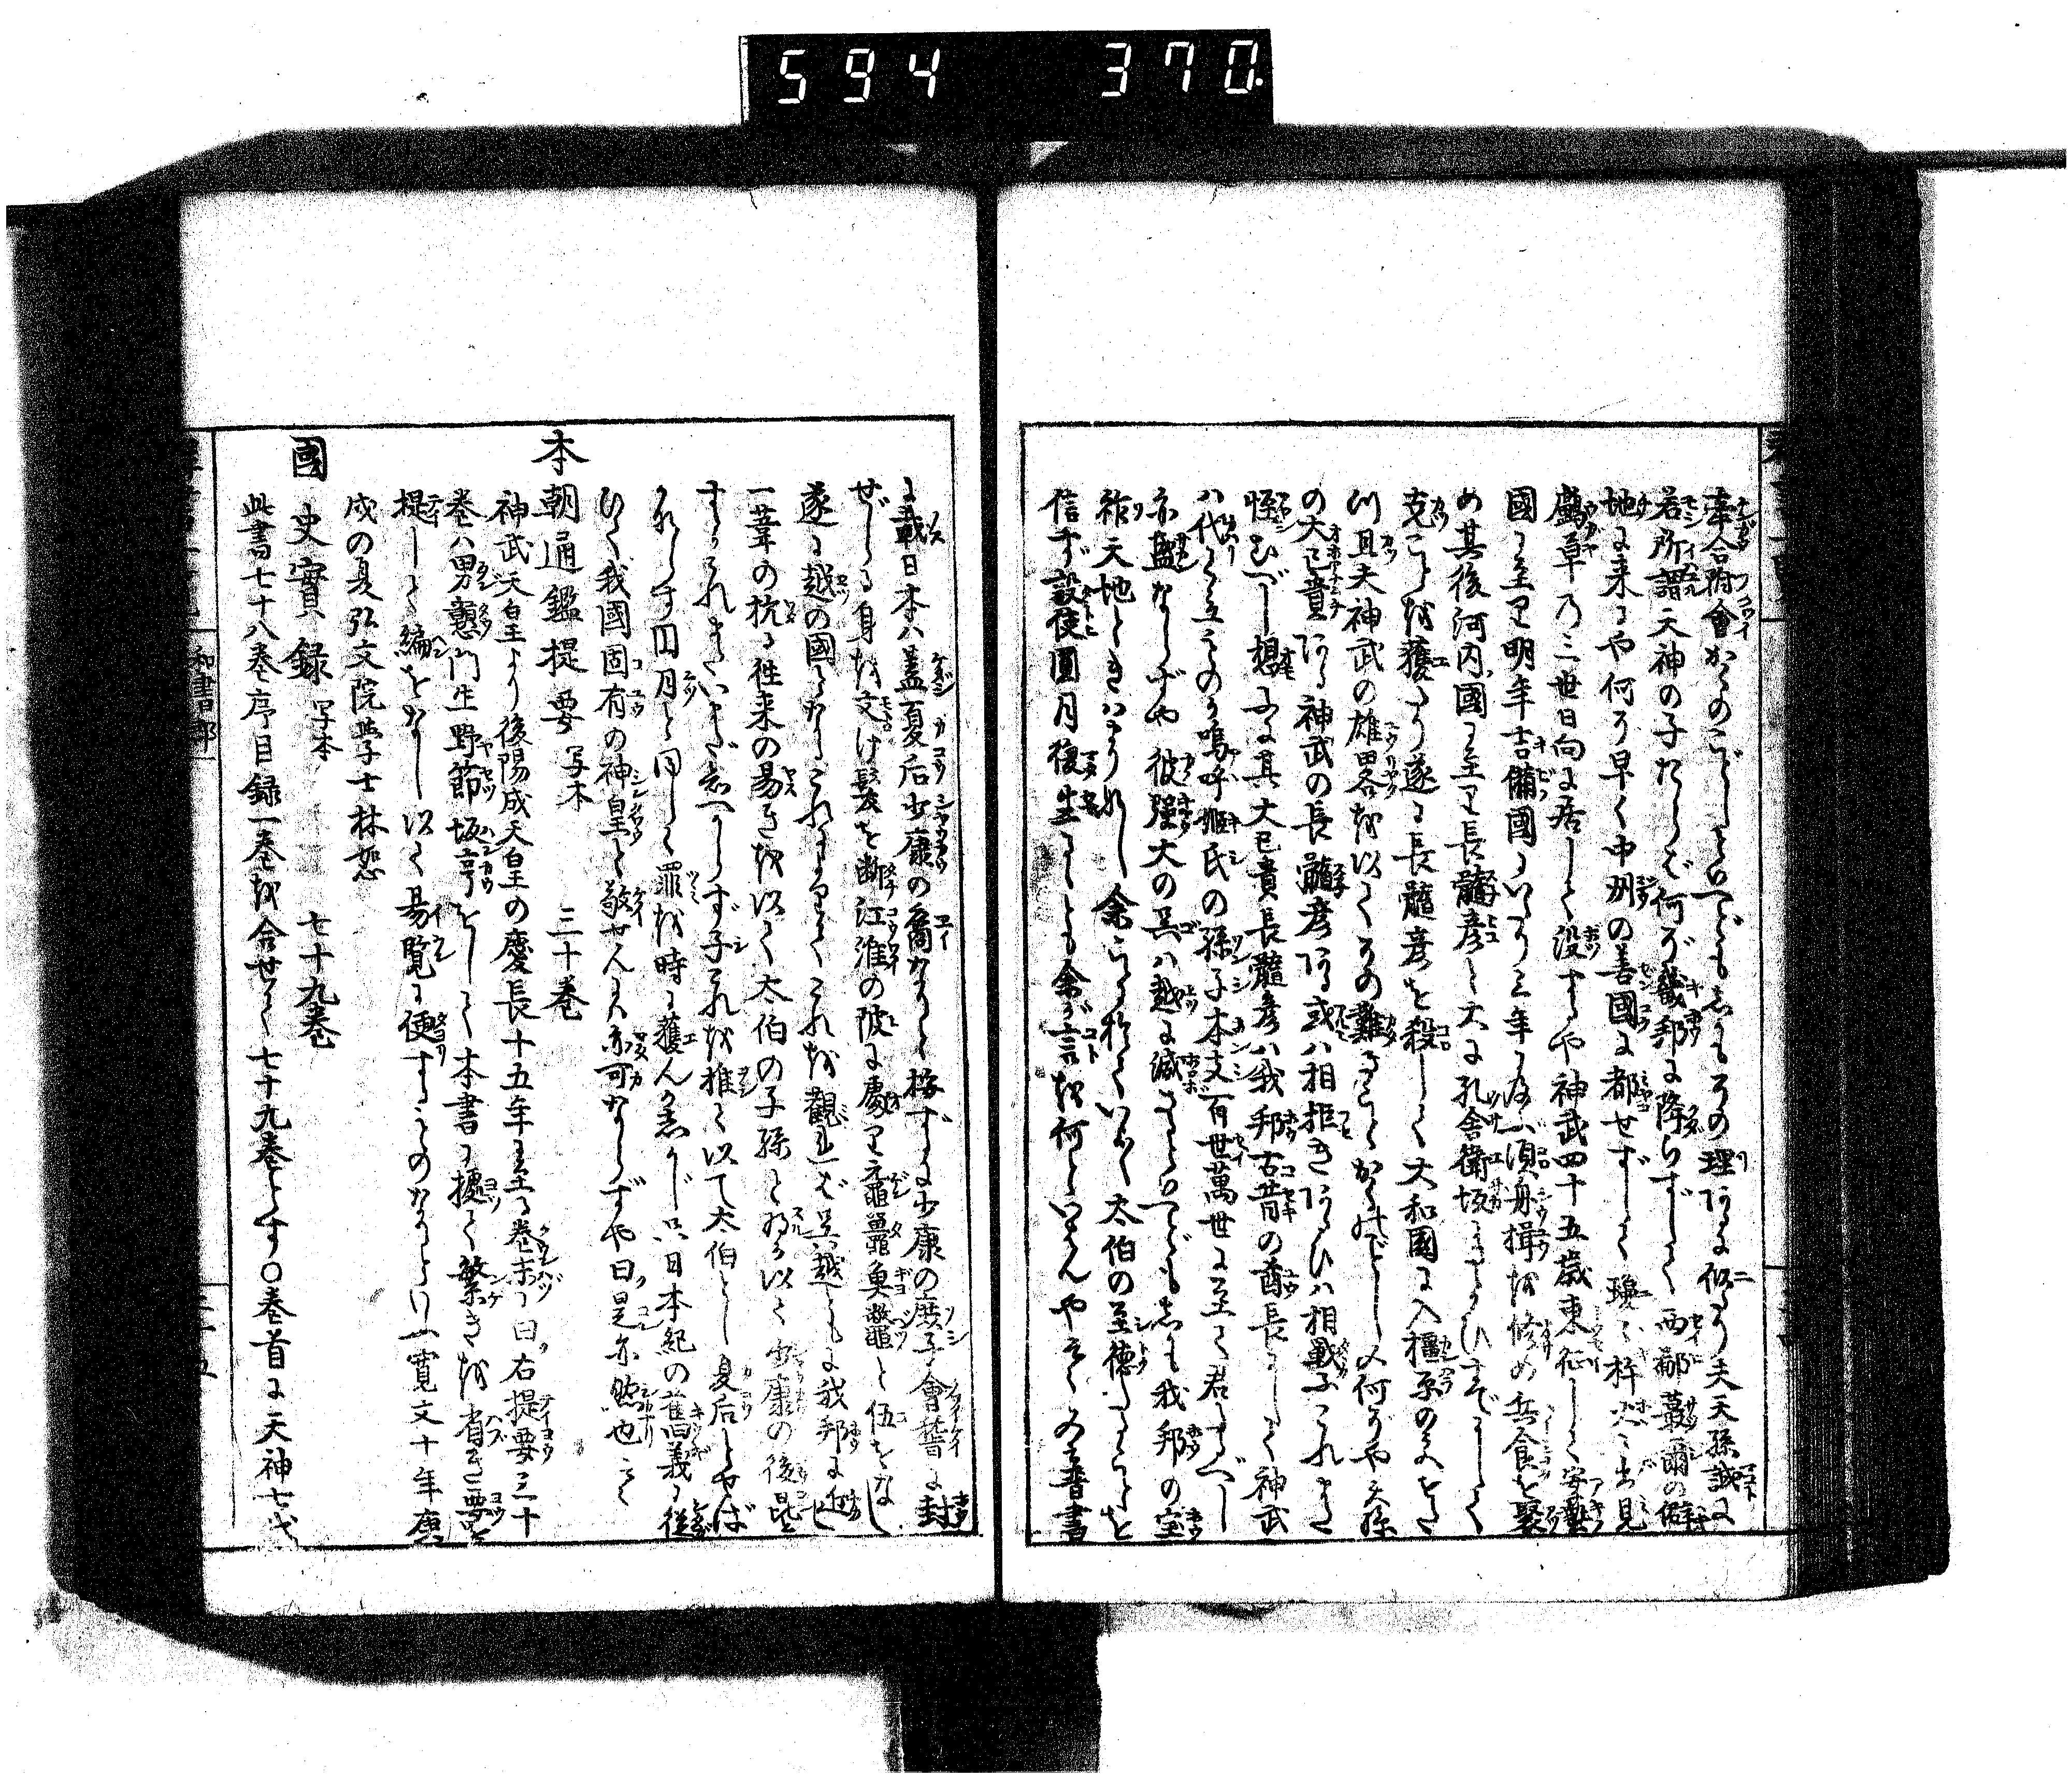 594 370
牽合附會かくのごとしといへどもしかもその理あるに似たり夫天孫誠に
若所謂天神の子たらば何ぞ畿邦に降らずして西鄙蕞爾の僻
地に来るや何ぞ早く中洲の善國に都せずして瓊々杵火々出見
鸕草の三世日向に居して没するや神武四十五歳東征して安藝
國に至り明年吉備國にいたり三年に及び頃舟揖を修め兵食を聚
め其後河内國に至り長髓彦と大に孔舍衛坂に
克ことを獲たり遂に長髓彦を殺して大和國に入橿原の
つ且夫神武の雄畧を以てその難きことかくのごとし又何ぞや天孫
の大己貴ある神武の長髓彦ある或ハ相拒き或ひハ相戰ふこれまた
恠むべし想ふに其大己貴長髓彦ハ我邦古昔の酋長にして神武
ハ代て立ものか嗚呼姬氏の孫子本支百世萬世に至て君たるべし
亦盛ならずや彼強大の呉ハ越に滅さるといへどもしかも我邦の宝
祚天地ときはまりなし余こゝにおいていよ〱太伯の至徳たることを
信ず設使圓月復生るとも余が言を何とかいはんやそもそも又晋書
に載日本ハ蓋夏后少康の裔なりと按ずるに少康の庶子會稽に封
ぜらる身を文け髮を断江淮の陂に處り黿鼉魚鼈と伍をなし
遂に越の國となるこれによりてこれを観れば呉越ともに我邦に近し
一葦の杭る徃来の易きを以て太伯の子孫と为る以て少康の後昆と
するこれまたいまだ知べからず子これを推て以て太伯とし夏后とせば
かならず円月と同く罪を時に獲んか只日本紀の舊義に從
ひて我國固有の神皇と敬せんも亦可ならずや曰是亦然也云云
本朝通鑑提要 写本 三十巻
神武天皇より後陽成天皇の慶長十五年に至る巻末に曰右提要三十
巻ハ男戇門生野節坂亨をして本書に據て繁きを省き要を
提して編をなし以て易覧に便するものなりと云寛文十年庚
戌の夏弘文院學士林恕
國史實録 写本 七十九巻
此書七十八巻序目録一巻を合せて七十九巻とす○巻首に天神七代
和書部